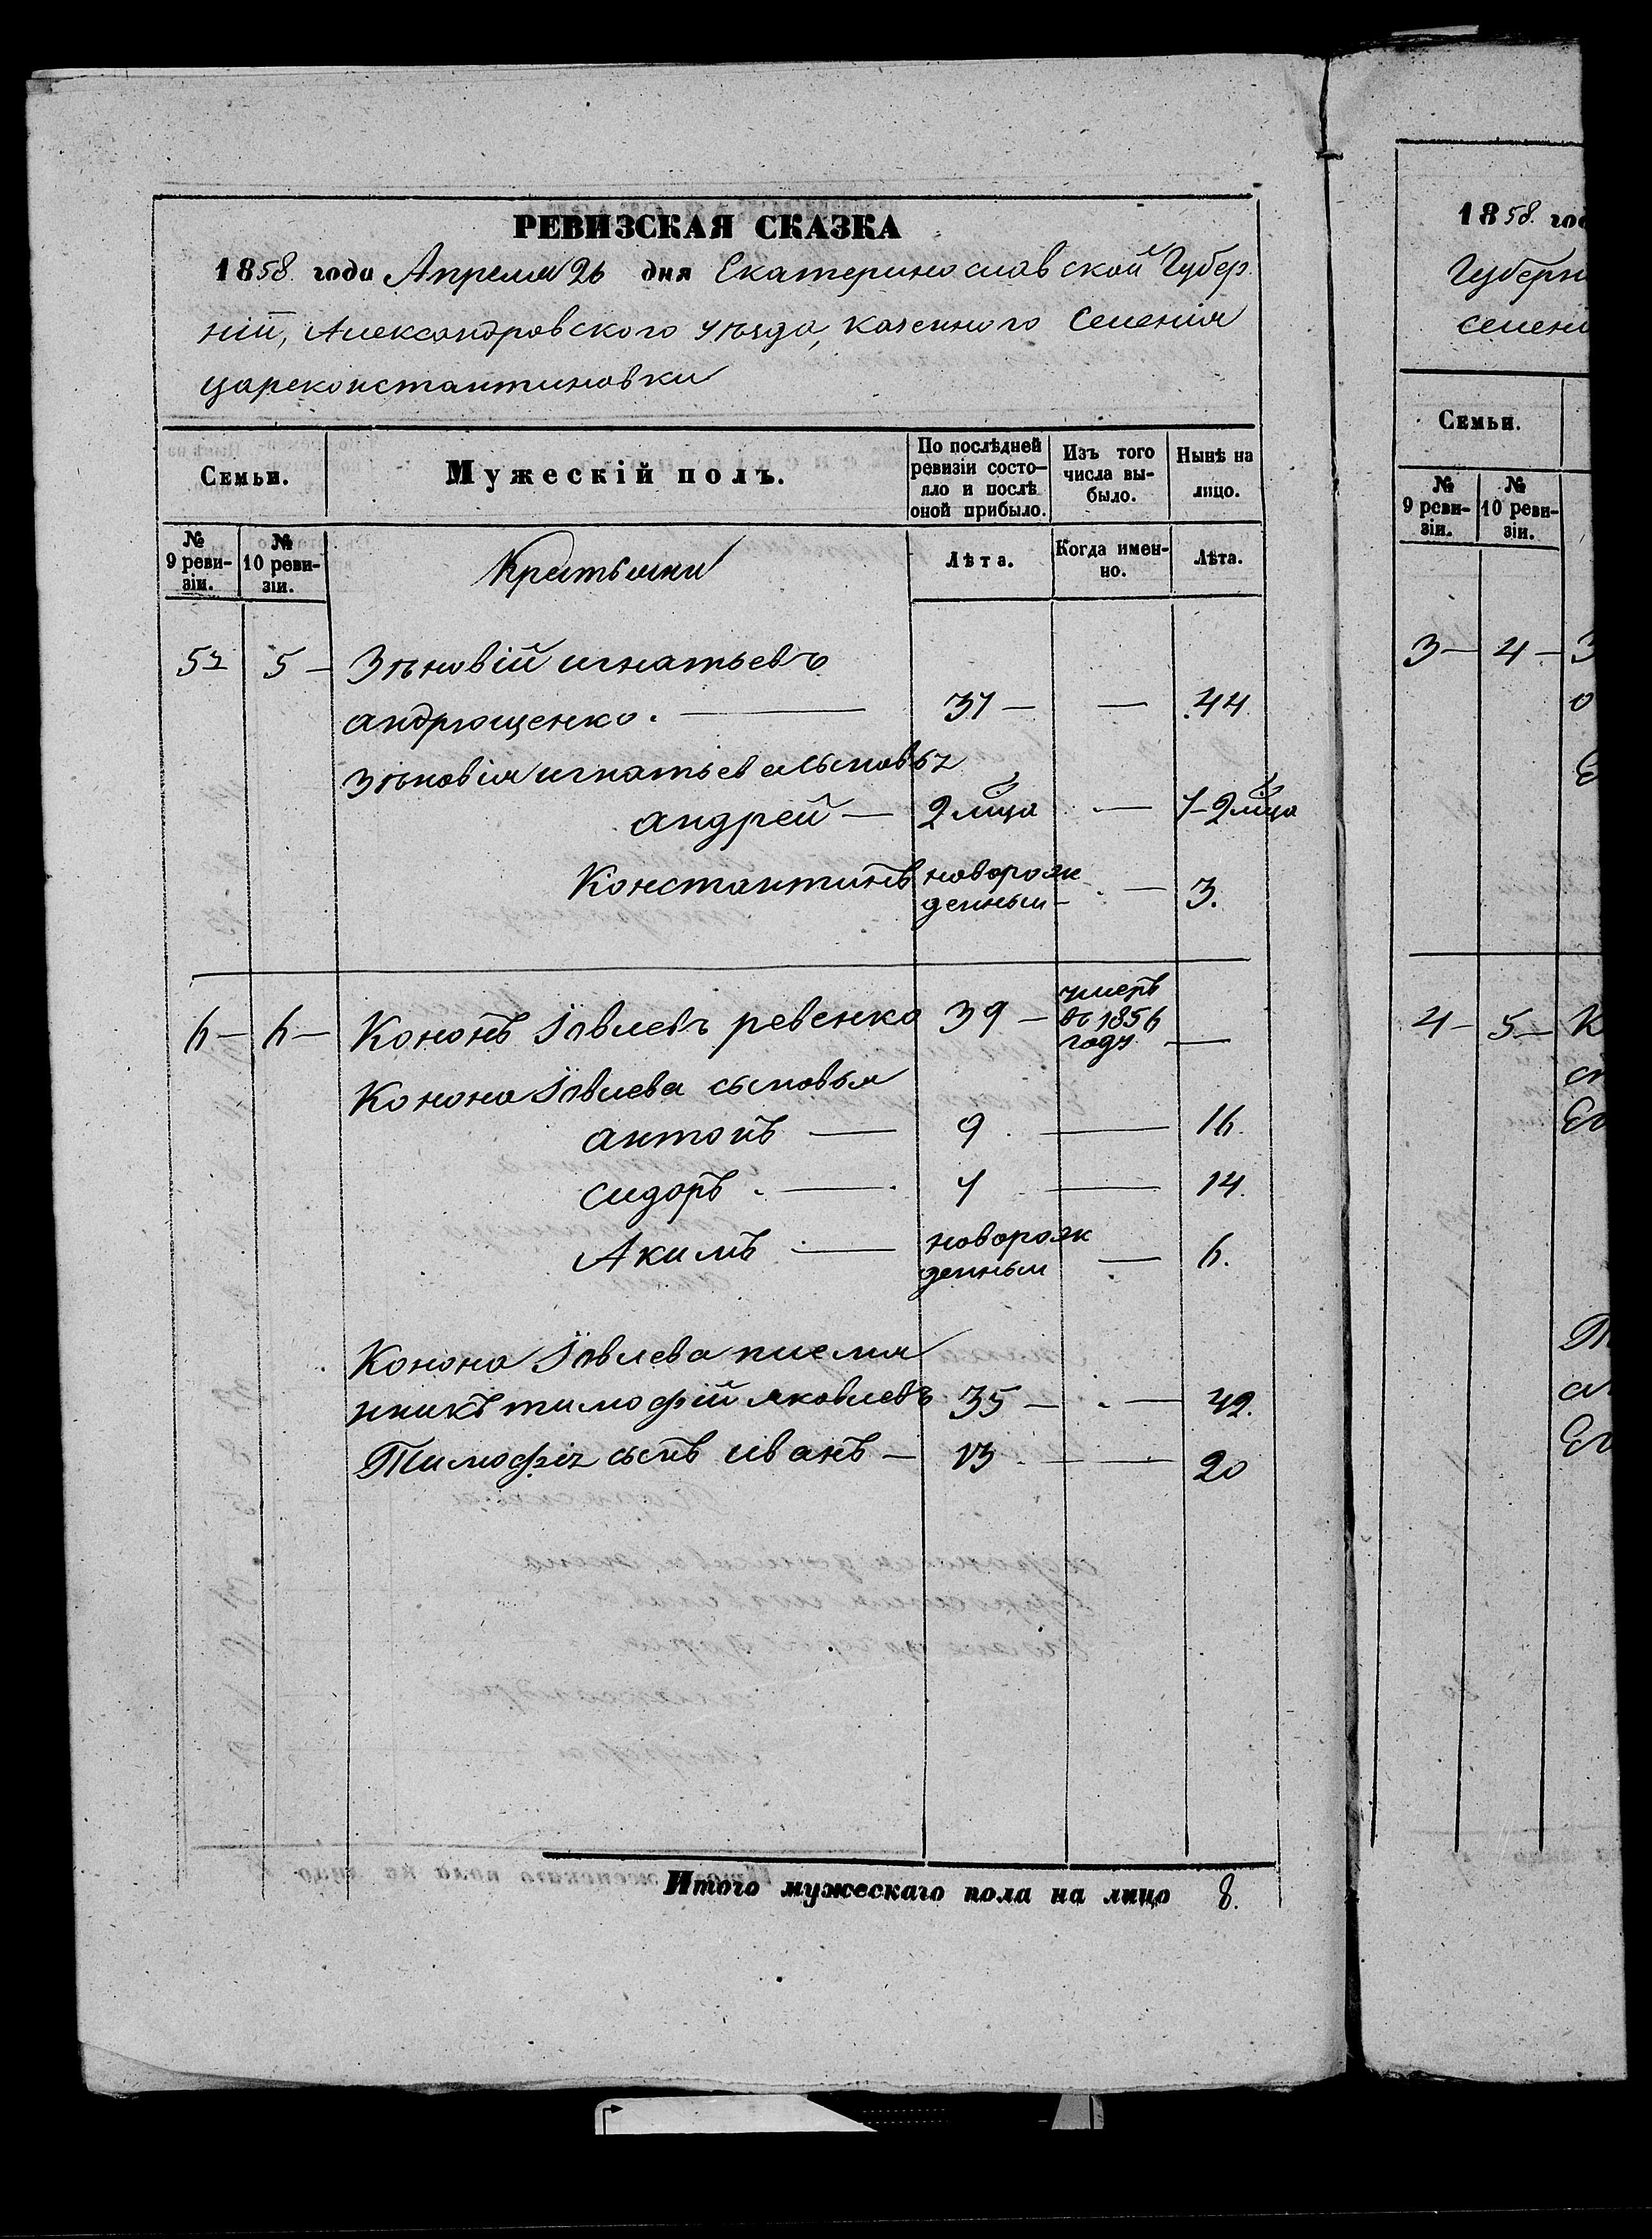 РЕВИЗСКАЯ СКАЗКА
1858. года Апреля 26 дня Екатеринославской Губер
ніи, Александровского уѣзда, казенного Селенія
цареконстантиновки
Семьи.
Мужескій полъ.
По послѣдней ревизіи состояло и послѣ оной прибыло.
Изъ того числа выбыло.
Нынѣ на лицо.
№ 9 ревизіи.
№ 10 ревизіи.
Крестьяни
Лѣта.
Когда именно.
Лѣта.
5 5 — Зѣновій игнатьевъ
андрющенко. — 37 — — 44
Зѣновія игнатьева сыновья
андрей — 2 лица — 7 — 2 лица
Константинъ новорожденный — — 3.
6 — 6 — Кононъ Іовлевъ ревенко 39 — умеръ въ 1856 году —
Конона Іовлева сыновья
антонъ — 9 — 16.
сидоръ. — 7 — 14.
Акимъ — новорожденный — 6.
Конона Іовлева племя
нникъ тимофій яковлевъ 35 — — 42.
Тимофія сынъ иванъ — 13 — 20
Итого мужескаго пола на лицо 8.
1858. год
Губерн
селені
Семьи.
№ 9 ревизіи.
№ 10 ревизіи.
3 — 4 — З
4 — 5 — К
Ег